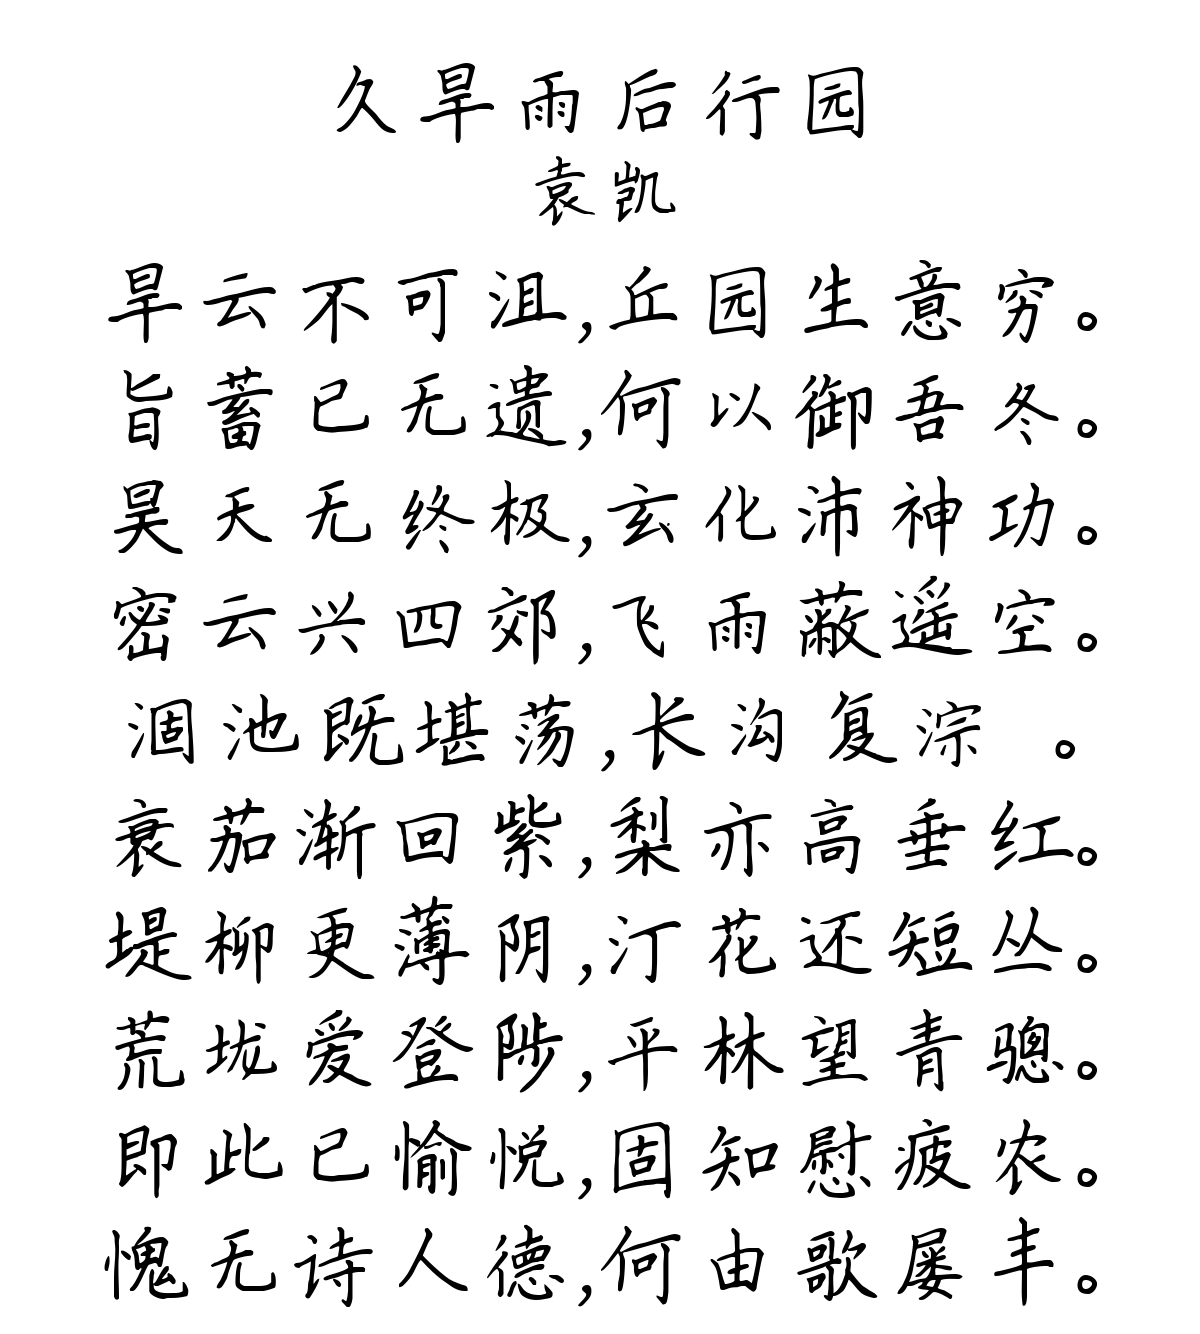 久旱雨后行园
袁凯
旱云不可沮,丘园生意穷。
旨蓄已无遗,何以御吾冬。
昊天无终极,玄化沛神功。
密云兴四郊,飞雨蔽遥空。
涸池既堪荡,长沟复淙 。
衰茄渐回紫,梨亦高垂红。
堤柳更薄阴,汀花还短丛。
荒垅爱登陟,平林望青骢。
即此已愉悦,固知慰疲农。
愧无诗人德,何由歌屡丰。